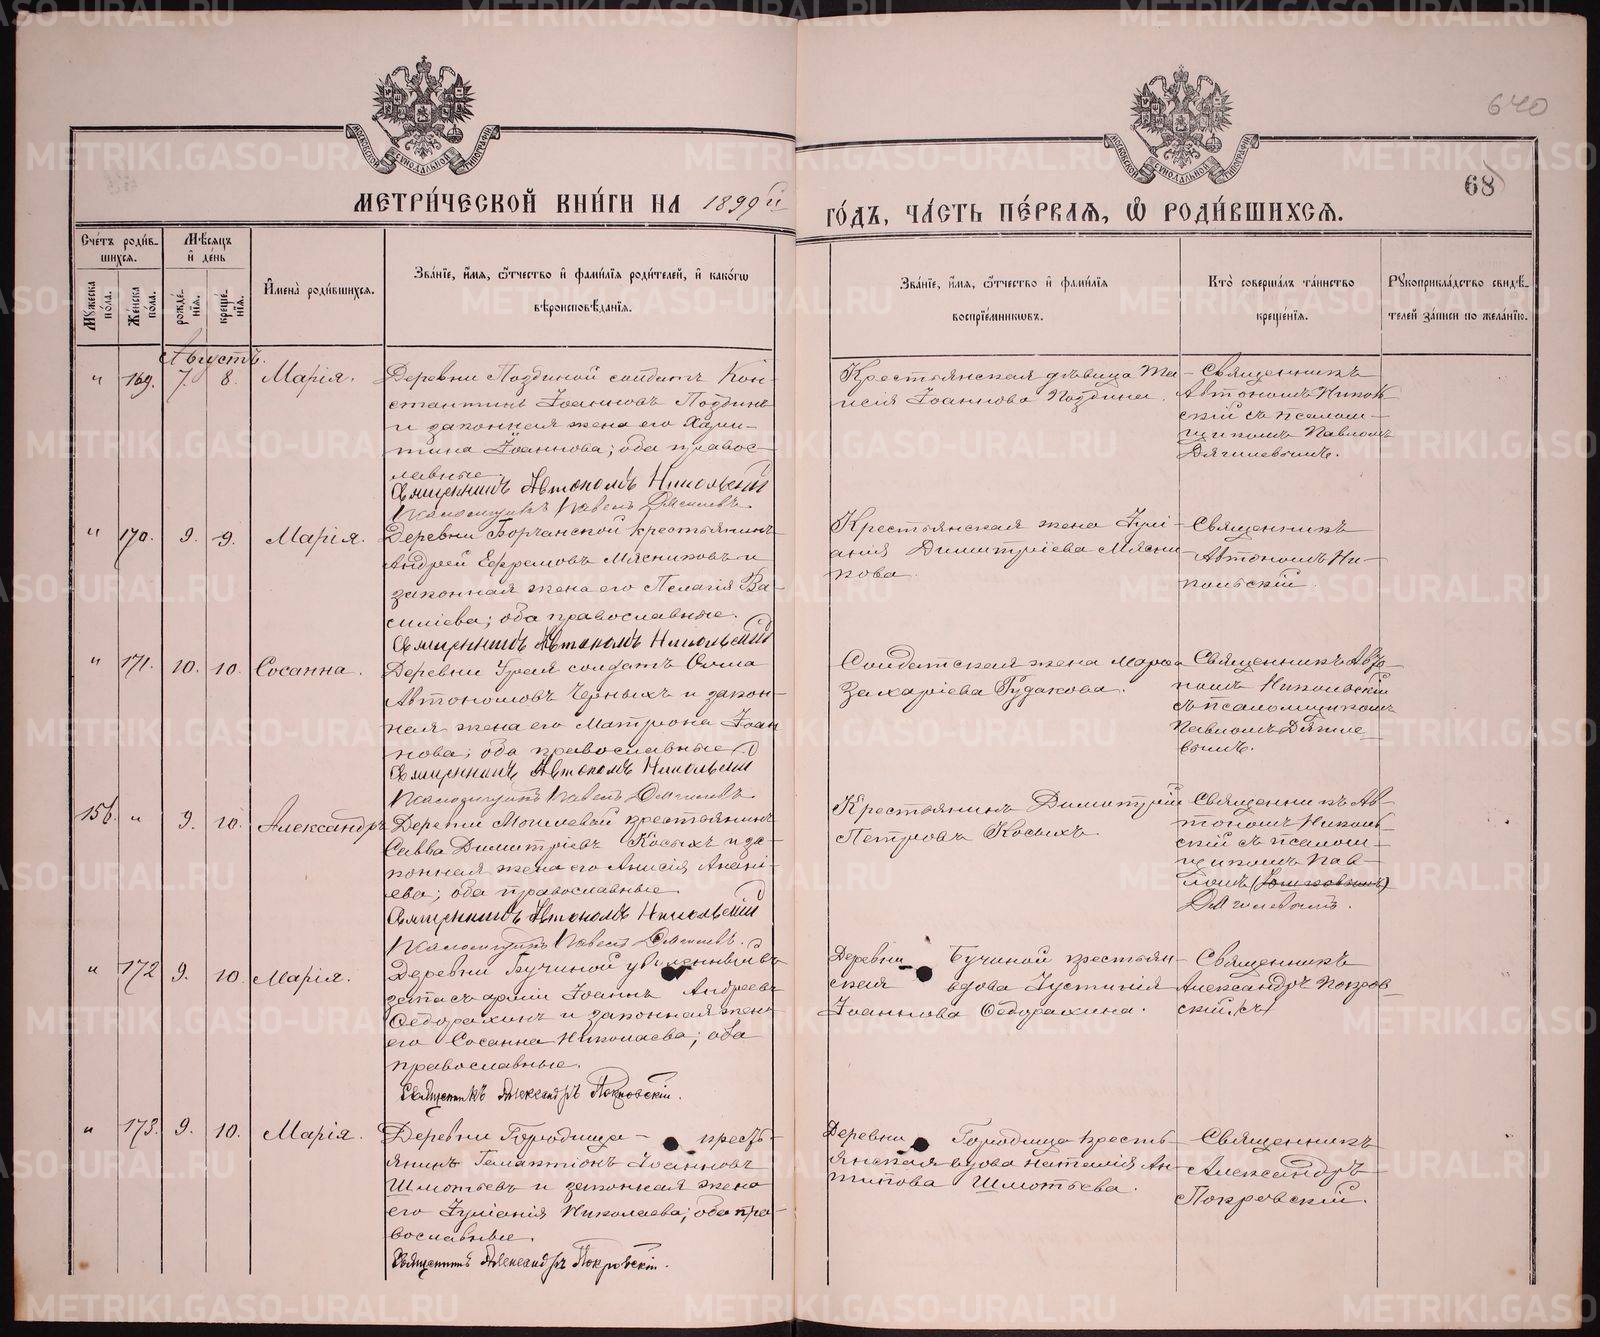 640
68
МЕТРИЧЕСКОЙ КНИГИ НА 1899й
ГОДЪ, ЧАСТЬ ПЕРВАЯ, Ѡ РОДИВШИХСЯ.
МОСКОВСКОЙ СУНОДАЛЬНОЙ ТИПОГРАФІИ
МОСКОВСКОЙ СУНОДАЛЬНОЙ ТИПОГРАФІИ
Счетъ родив-
шихся.
Мужеска пола.
Женска пола.
Мѣсяцъ и день
рожде-
нія.
креще-
нія.
Имена родившихся.
Званіе, имя, ѿчество и фамилія родителей, и какого
вѣроисповѣданія.
Званіе, имя, ѿчество и фамилія
воспріемниковъ.
Кто совершалъ таинство
крещенія.
Рукоприкладство свидѣ-
телей записи по желанію.
Августъ.
" 169. 7. 8. Марія.
Деревни Поздиной солдатъ Кон-
стантинъ Іоанновъ Поздинъ
и законная жена его Хари-
тина Іоаннова; оба правос-
лавные.
Священникъ Автономъ Никольскій
Псаломщикъ Павелъ Дягилевъ.
Крестьянская дѣвица Та-
исія Іоаннова Поздина.
Священникъ
Автономъ Николь-
скій съ псалом-
щикомъ Павломъ
Дягилевымъ.
" 170. 9. 9. Марія.
Деревни Борчанской крестьянинъ
Андрей Ефремовъ Мясниковъ и
законная жена его Пелагія Ва-
силіева; оба православные.
Священникъ Автономъ Никольскій
Крестьянская жена Іулі-
анія Димитріева Мясни-
кова.
Священникъ
Автономъ Ни-
кольскій.
" 171. 10. 10. Сосанна.
Деревни солдатъ Ѳома
Автономовъ Черныхъ и закон-
ная жена его Матрона Іоан-
нова; оба православные
Священникъ Автономъ Никольскій
Псаломщикъ Павелъ Дягилевъ
Солдатская жена Марѳа
Захаріева Гудакова.
Священникъ Авто-
номъ Никольскій
съ псаломщикомъ
Павломъ Дягиле-
вымъ.
156. " 9. 10. Александръ
Деревни Мокиевой крестьянинъ
Савва Димитріевъ Косыхъ и за-
конная жена его Анисія Анані-
ева; оба православные
Священникъ Автономъ Никольскій
Псаломщикъ Павелъ Дягилевъ.
Крестьянинъ Димитрій
Петровъ Косыхъ.
Священникъ Ав-
тономъ Николь-
скій съ псалом-
щикомъ Пав-
ломъ
Дягилевымъ.
" 172 9. 10. Марія.
Деревни Бучиной уволенный въ
запасъ арміи Іоаннъ Андреевъ
Ѳедорахинъ и законная жена
его Сосанна Николаева; оба
православные.
Священникъ Александръ Покровскій.
Деревни Бучиной крестьян-
ская вдова Іустинія
Іоаннова Ѳедорахина.
Священникъ
Александръ Покров-
скій. съ
" 173. 9. 10. Марія.
Деревни Городища кресть-
янинъ Галактіонъ Іоанновъ
Шмотьевъ и законная жена
его Іуліанія Николаева; оба пра-
вославные.
Священникъ Александръ Покровскій.
Деревни Городища кресть-
янская вдова Наталія Ан-
типова Шмотьева.
Священникъ
Александръ
Покровскій.
METRIKI.GASO-URAL.RU